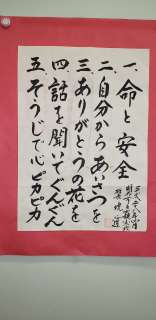 一、命と安全
二、自分からあいさつを
三、ありがとうの花を
四、話を聞いてぐんぐん
五、そうじで心ピカピカ